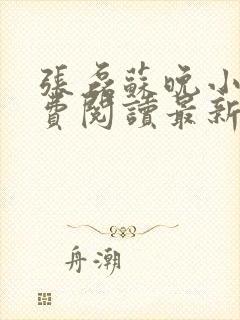 張磊蘇晚小
費閱讀最新
舟潮